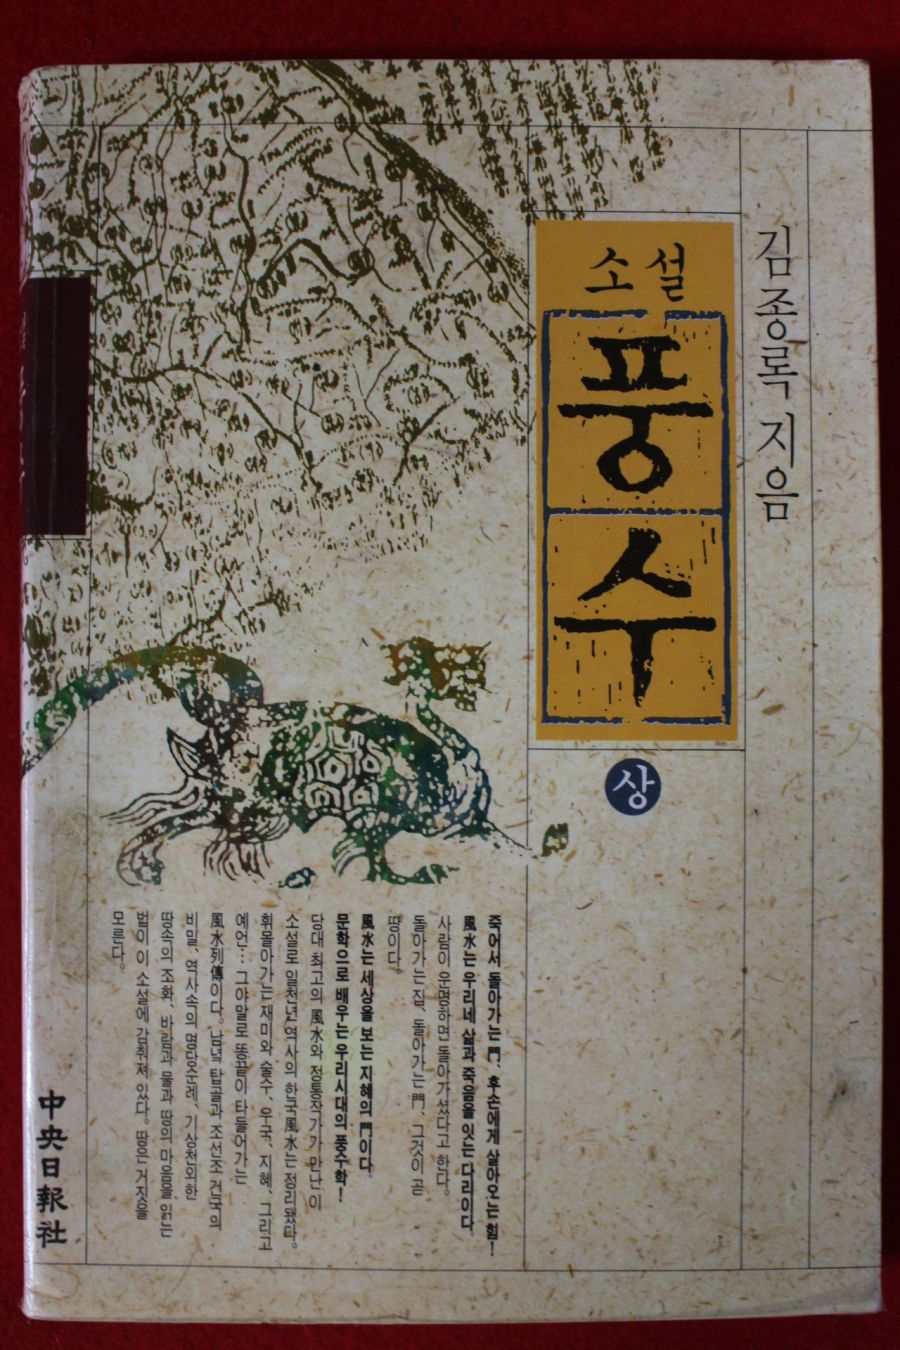 소설
풍수
상
김종록 지음
죽어서 돌아가는 門, 후손에게 살아오는 힘!
風水는 우리네 삶과 죽음을 잇는 다리이다.
사람이 운명하면 돌아가셨다고 한다.
돌아가는 집, 돌아가는 門, 그것이 곧
땅이다.
風水는 세상을 보는 지혜의 門이다.
문학으로 배우는 우리시대의 풍수학!
당대 최고의 風水와 정통작가가 만난 이
소설로 일천년 역사의 한국風水는 정리됐다.
휘몰아가는 재미와 술수, 우국, 지혜, 그리고
예언… 그야말로 똥끝이 타들어가는
風水列傳이다. 남녘 탑골과 조선조 건국의
비밀, 역사속의 명당순례, 기상천외한
땅속의 조화, 바람과 물과 땅의 마음을 읽는
법이 이 소설에 감춰져 있다. 땅은 거짓을
모른다.
中央日報社